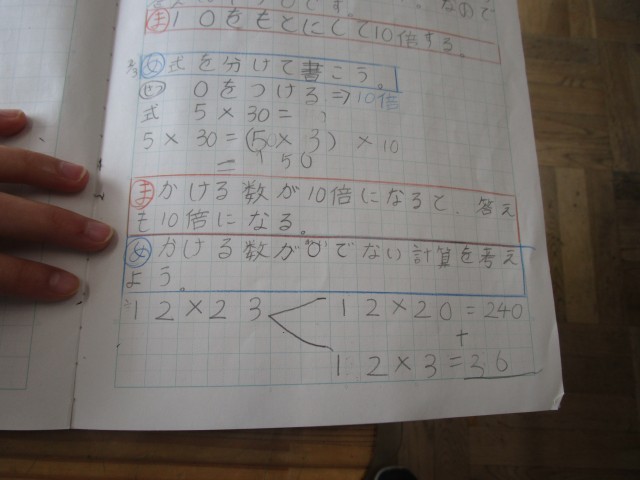 なので
です。
ま 10をもとにして10倍する。
め 式を分けて書こう。
0をつける⇒10倍
式 5×30=
5×30=(5×3)×10
=150
ま かける数が10倍になると、答え
も10倍になる。
め かける数が0でない計算を考え
よう。
12×23 12×20=240
+
12×3=36